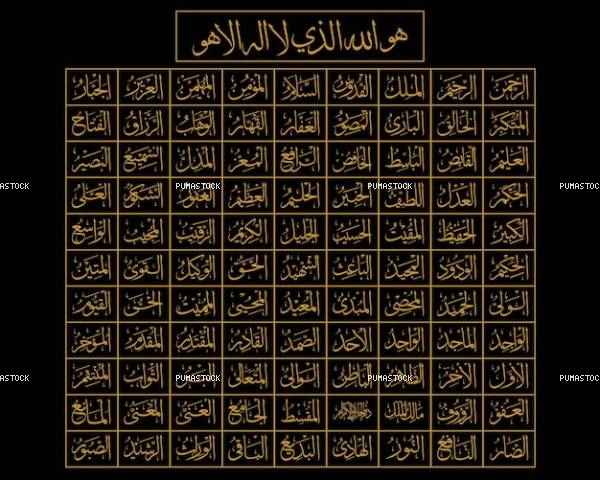 هو الله الذي لا اله الا هو
الرحمن الرحيم الملك القدوس السلام المؤمن المهيمن العزيز الجبار
المتكبر الخالق البارئ المصور الغفار القهار الوهاب الرزاق الفتاح
العليم القابض الباسط الخافض الرافع المعز المذل السميع البصير
الحكم العدل اللطيف الخبير الحليم العظيم الغفور الشكور العلي
PUMASTOCK PUMASTOCK PUMASTOCK PUMASTOCK
الكبير الحفيظ المقيت الحسيب الجليل الكريم الرقيب المجيب الواسع
الحكيم الودود المجيد الباعث الشهيد الحق الوكيل القوي المتين
الولي الحميد المحصي المبدئ المعيد المحيي المميت الحي القيوم
الواجد الماجد الواحد الاحد الصمد القادر المقتدر المقدم المؤخر
الاول الآخر الظاهر الباطن الوالي المتعالي التواب المنتقم
PUMASTOCK PUMASTOCK PUMASTOCK PUMASTOCK
العفو الرؤوف مالك الملك ذو الجلال والاكرام المقسط الجامع الغني المغني المانع
الضار النافع النور الهادي البديع الباقي الوارث الرشيد الصبور